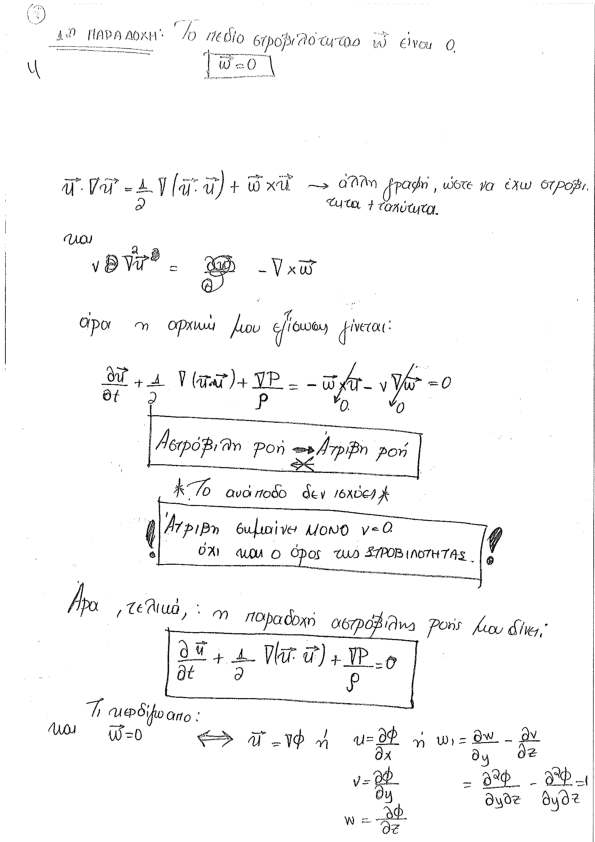 1η ΠΑΡΑΔΟΧΗ: Το πεδίο στροβιλότητας w⃗ είναι 0.
w⃗ = 0
4
u⃗·∇u⃗ = 1/2 ∇(u⃗·u⃗) + w⃗ × u⃗ → άλλη γραφή, ώστε να έχω στροβι
τητα + ταχύτητα.
και
ν ∇²u⃗ = - ∇×w⃗
άρα η αρχική μου εξίσωσης γίνεται:
∂u⃗/∂t + 1/2 ∇(u⃗·u⃗) + ∇P/ρ = - w⃗×u⃗ - ν ∇×w⃗ = 0
0. 0
Αστρόβιλη ροή → Άτριβη ροή
*Το ανάποδο δεν ισχύει*
! Άτριβη σημαίνει ΜΟΝΟ ν=0. !
όχι και ο όρος της ΣΤΡΟΒΙΛΟΤΗΤΑΣ.
Άρα, τελικά, : η παραδοχή αστρόβιλης ροής μου δίνει:
∂u⃗/∂t + 1/2 ∇(u⃗·u⃗) + ∇P/ρ = 0
Τι κερδίζω απο:
και w⃗=0 ⟺ u⃗ = ∇Φ ή u = ∂Φ/∂x ή w₁ = ∂w/∂y - ∂v/∂z
v = ∂Φ/∂y = ∂²Φ/∂y∂z - ∂²Φ/∂y∂z =
w = ∂Φ/∂z